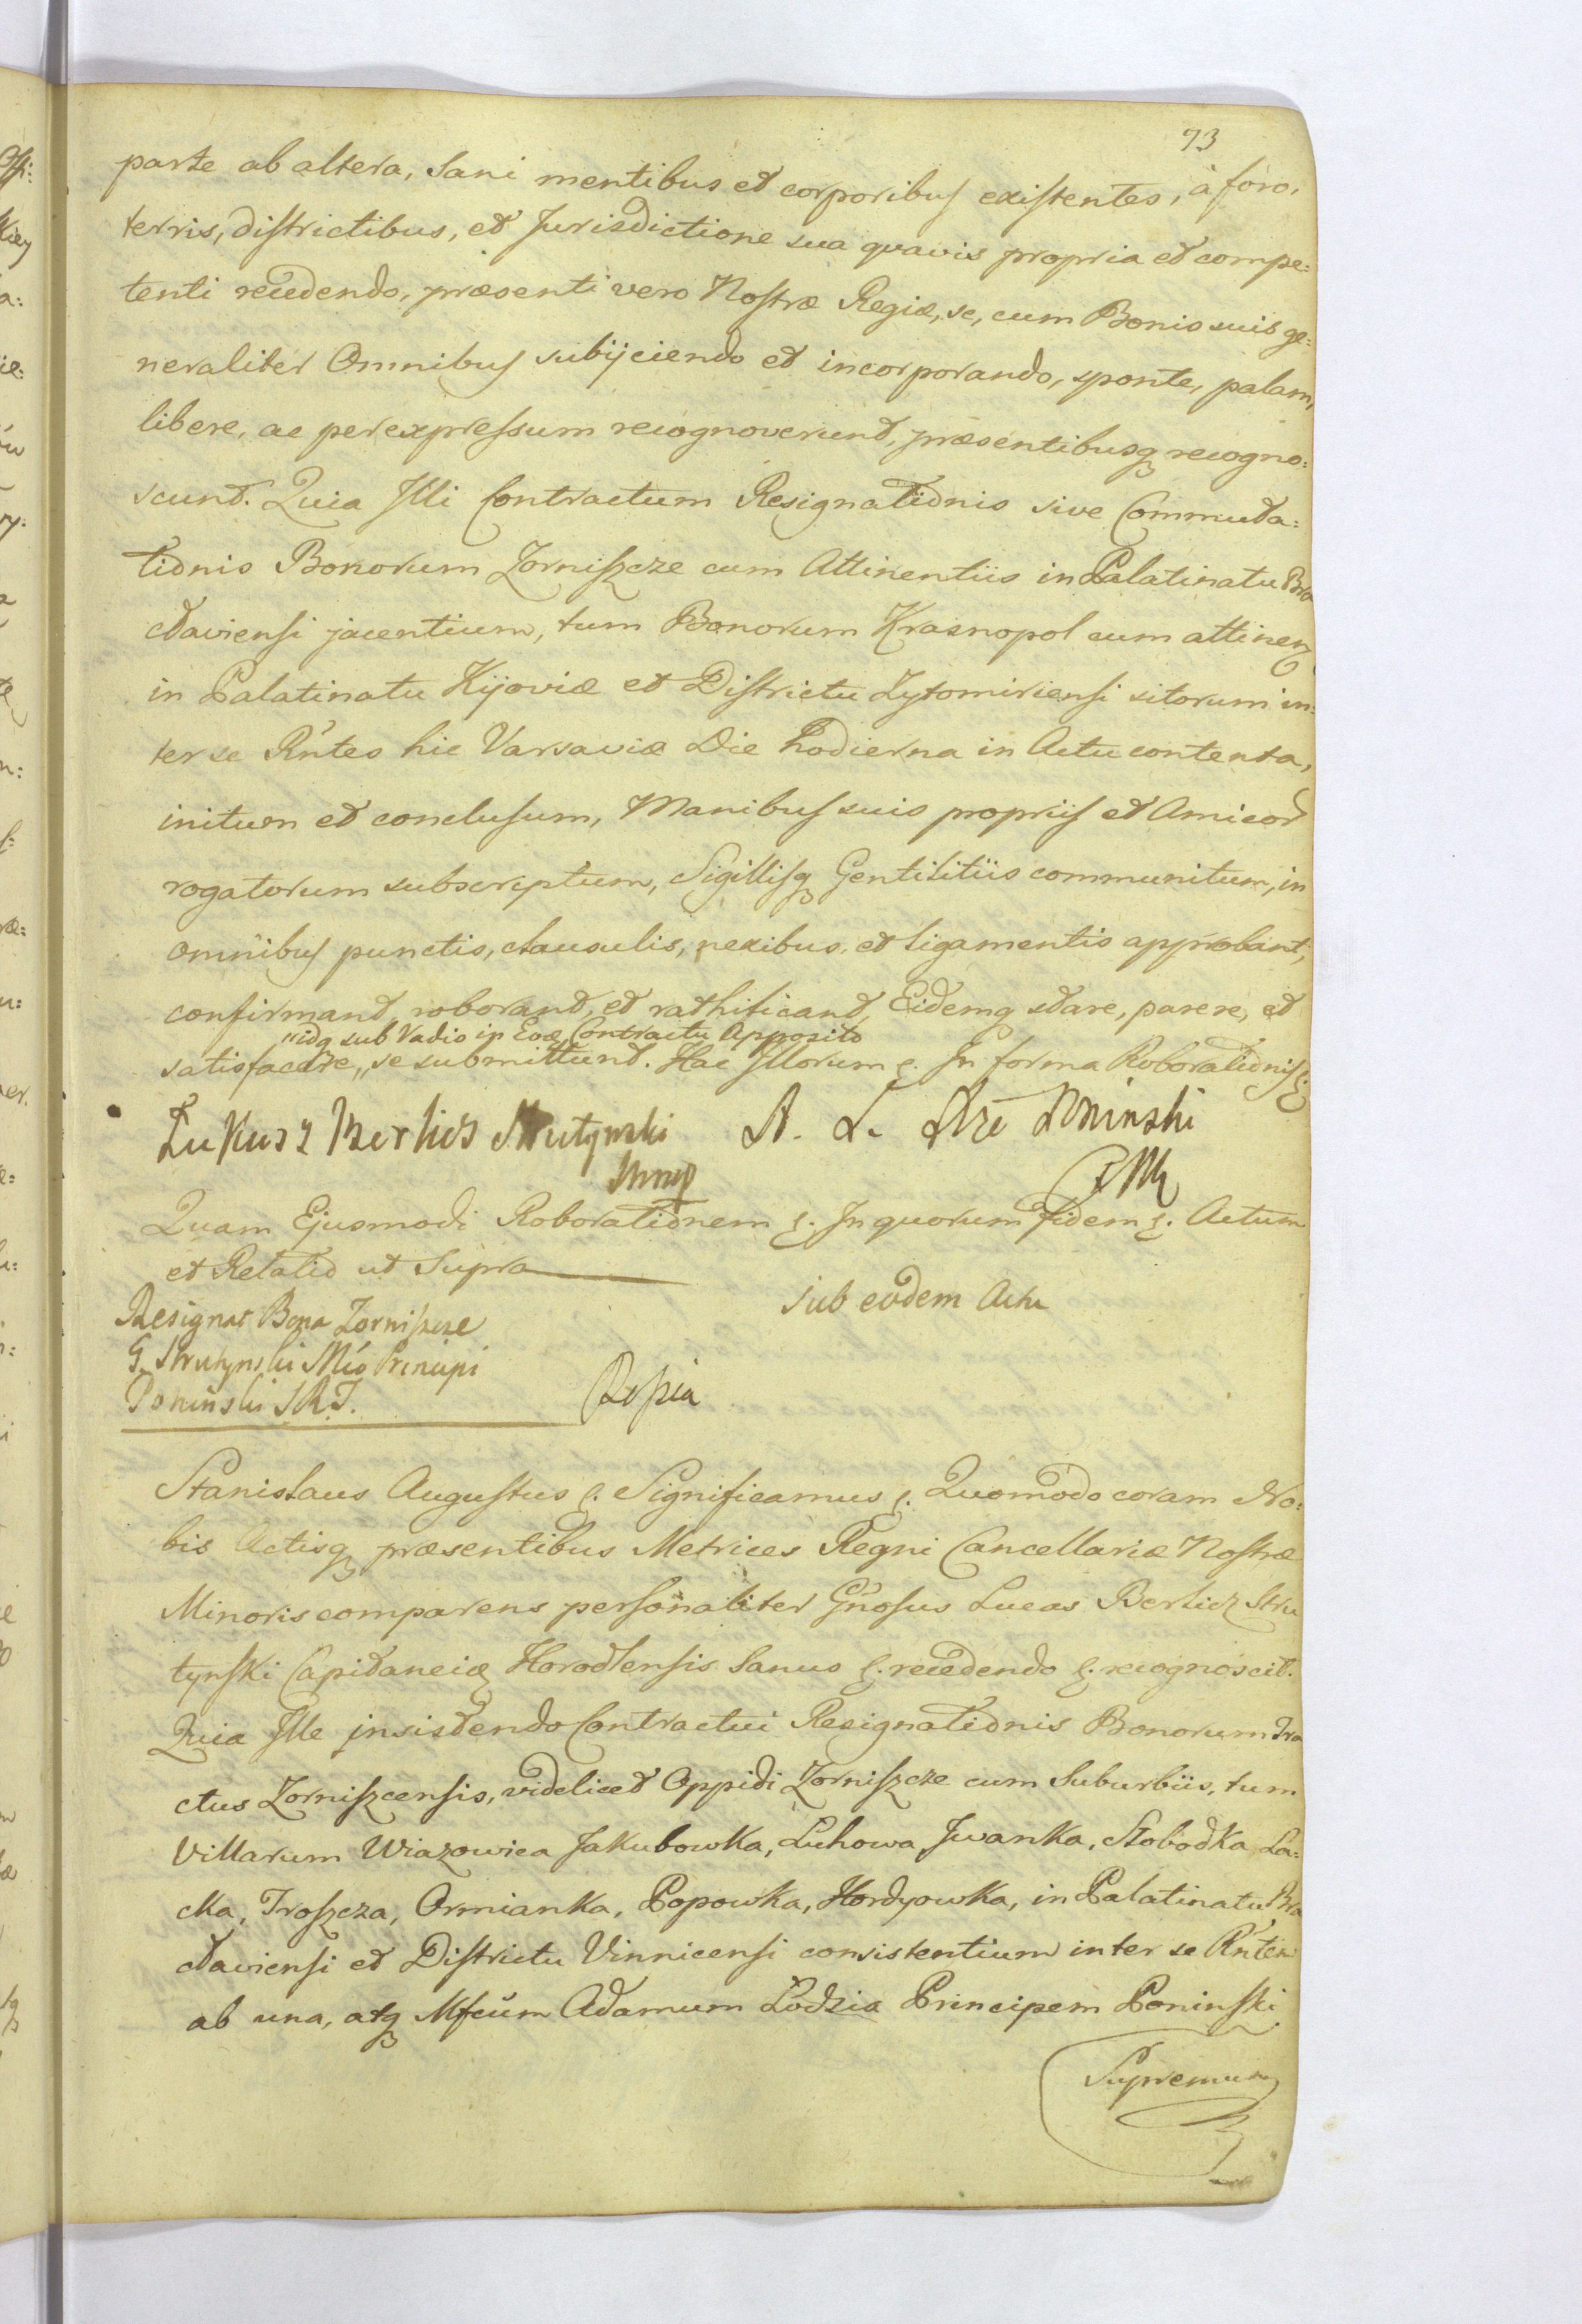 73
parte ab altera, Sani mentibus et corporibus existentes, à foro,
terris, districtibus, et Jurisdictione sua quavis propria et compe:
tenti recedendo, præsenti vero Nostræ Regiæ, se, cum Bonis suis ge:
neraliter Omnibus subijciendo et incorporando, sponte, palam,
libere, ac per expressum recognoverunt, præsentibusq recogno:
scunt. Quia Illi Contractum Resignationis sive Commuta:
tionis Bonorum Zorniszcze cum Attinentiis in Palatinatu Bra
claviensi jacentium, tum Bonorum Krasnopol cum attinen
in Palatinatu Kijoviæ et Districtu Zytomiriensi sitorum in:
ter se Rńtes hic Varsaviæ Die hodierna in Actu contenta,
initum et conclusum, Manibus suis propriis et Amicor
rogatorum subscriptum, Sigillisq Gentilitiis communitum, in
omnibus punctis, clausulis, nexibus, et ligamentis approbant,
confirmant, roborant, et rathificant, Eidemq stare, parere, et
"idq sub Vadio in Eoq Contractu Apposito
satisfacere,, se submittunt. Hac Illorum ę. In forma Roborationis ę.
Łukasz Berlicz Strutynski A. L. Xże Poninski
mp
Quam Ejusmodi Roborationem ę. In quorum fidem ę. Actum
et Relatio ut Supra
Sub eodem Actu
Resignat Bona Zorniszcze
G. Strutynski Mfo Principi
Poninski SRJ.
Stanislaus Augustus ę. Significamus ę. Quomodo coram No:
bis Actisq præsentibus Metrices Regni Cancellariæ Nostræ
Minoris comparens personaliter Gńosus Lucas Berlicz Stru
tynski Capitaneiæ Horodlensis Sanus ę. recedendo ę. recognoscit.
Quia Ille insistendo Contractui Resignationis Bonorum Tra
ctus Zorniszcensis, videlicet Oppidi Zorniszcze cum Suburbiis, tum
Villarum Wiazowica Jakubowka, Luhowa, Iwanka, Slobodka, La:
cka, Troszcza, Ormianka, Popowka, Hordyowka, in Palatinatu Bra
claviensi et Districtu Vinnicensi consistentium inter se Rńtem
ab una, atq Mfcum Adamum Łodzia Principem Poninski
Supremum